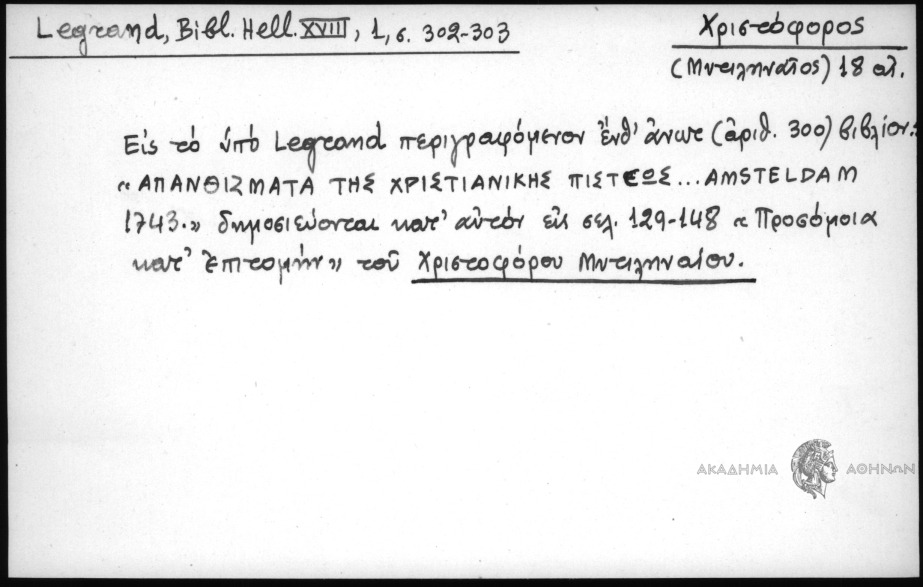 Legrand, Bibl. Hell. XVIII, 1, σ. 302-303
Χριστόφορος
(Μυτιληναῖος) 18 αἰ.
Εἰς τό ὑπό Legrand περιγραφόμενον ἔνθ' ἄνωτ (ἀριθ. 300) βιβλίον:
« ΑΠΑΝΘΙΣΜΑΤΑ ΤΗΣ ΧΡΙΣΤΙΑΝΙΚΗΣ ΠΙΣΤΕΩΣ... AMSTELDAM
1743.» δημοσιεύονται κατ' αὐτόν εἰς σελ. 129-148 « Προσόμοια
κατ' ἐπιτομήν» τοῦ Χριστοφόρου Μυτιληναίου.
ΑΚΑΔΗΜΙΑ ΑΘΗΝΩΝ